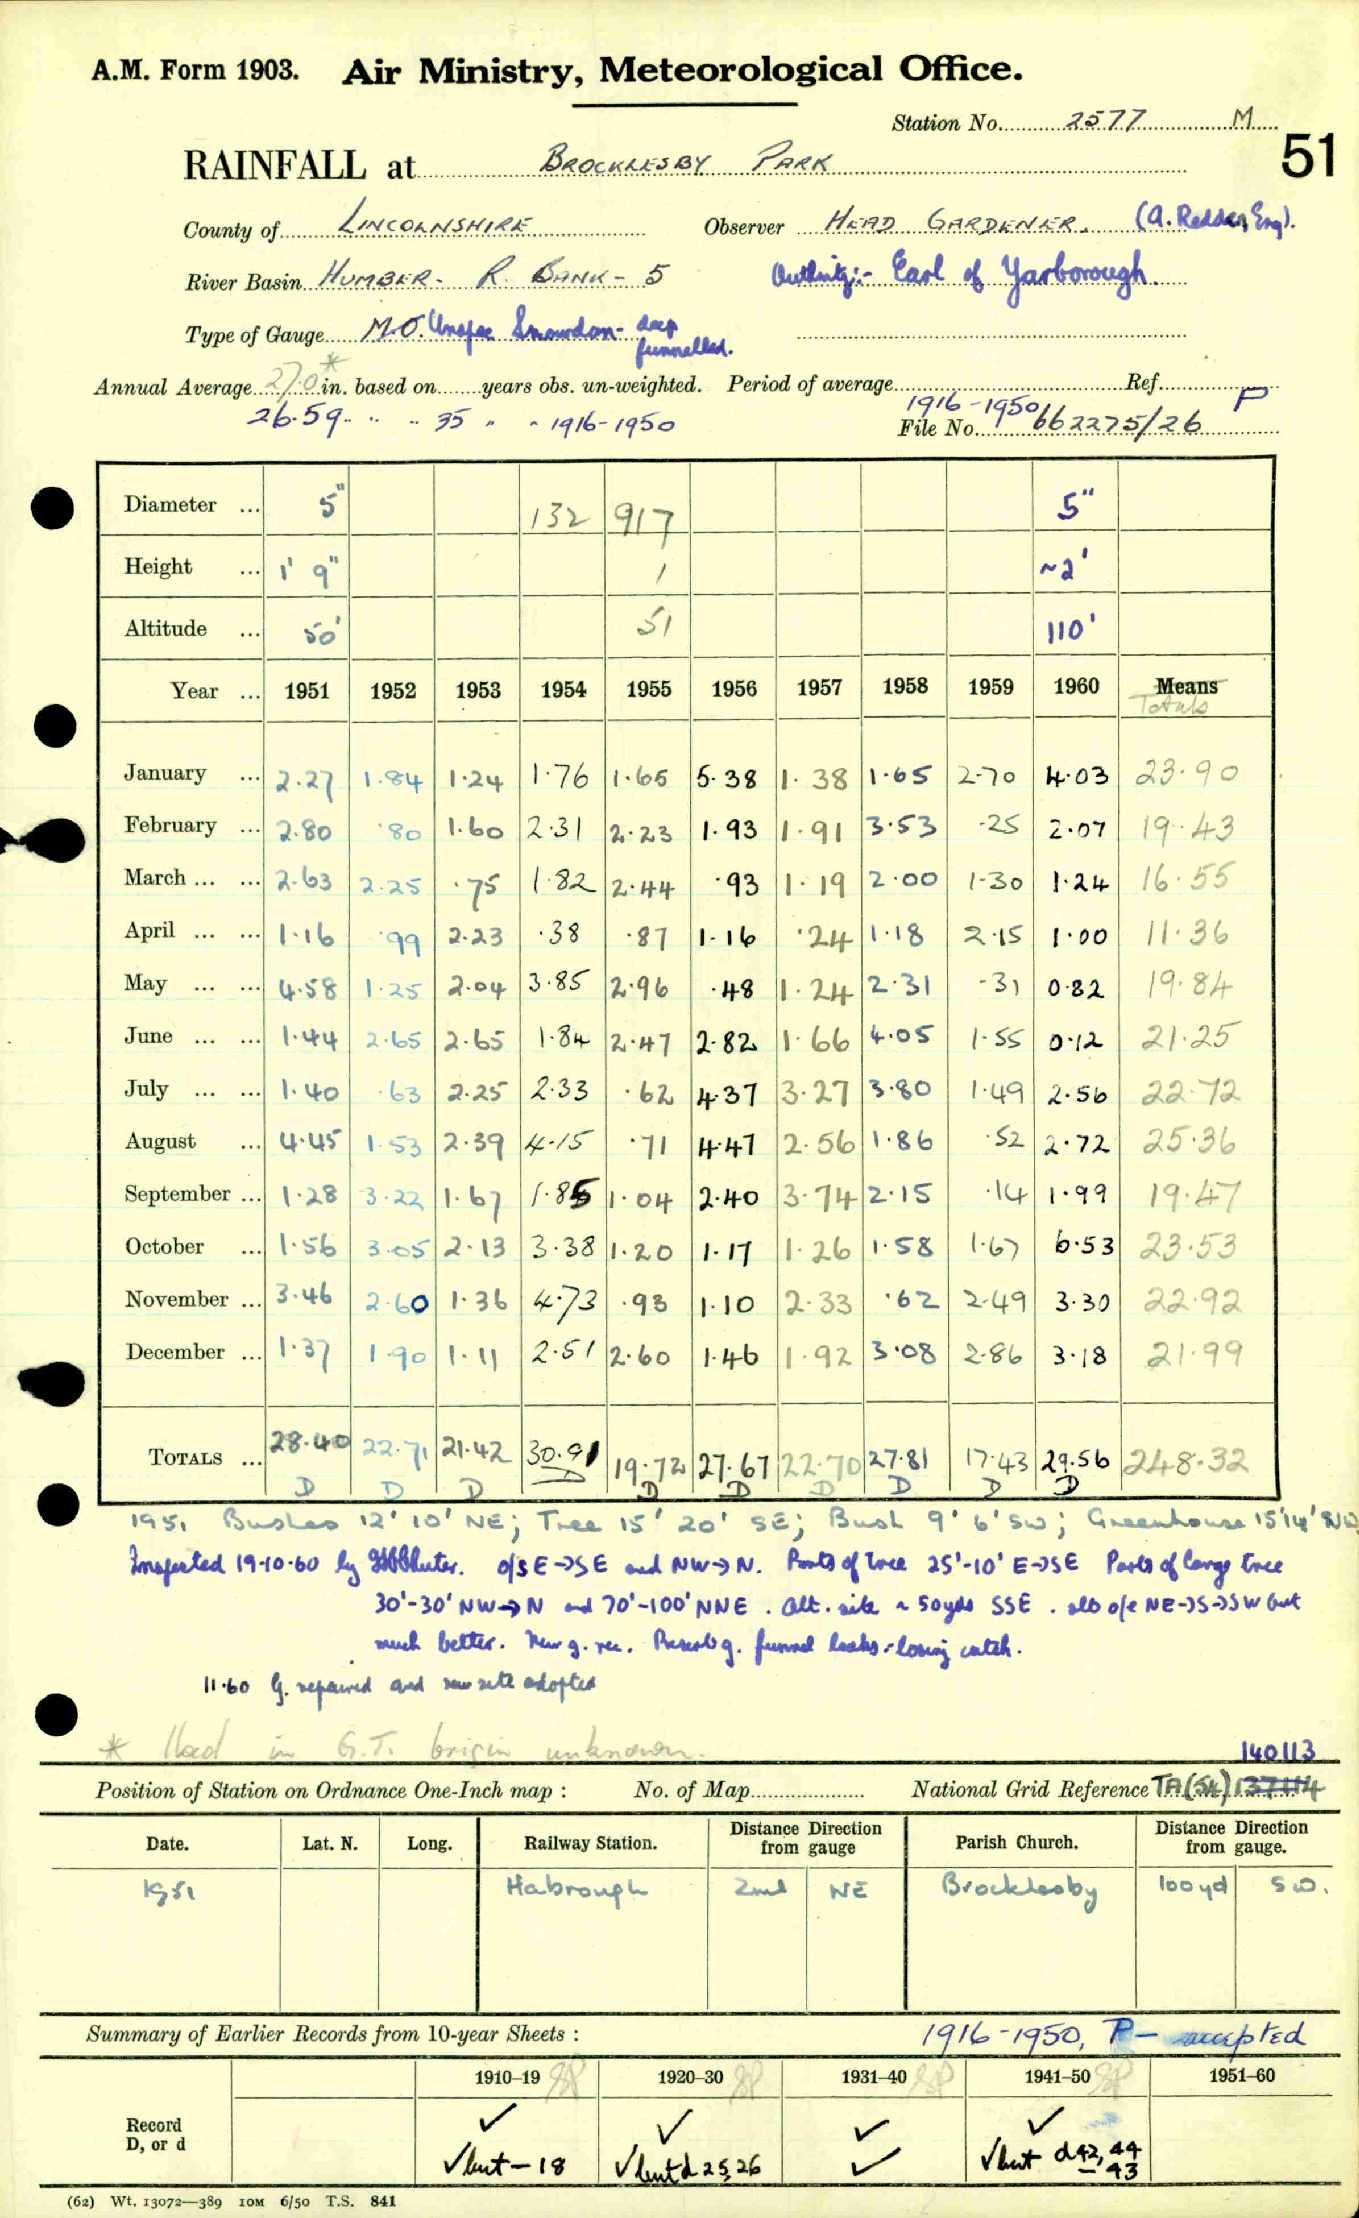 A.M. Form 1903. Air Ministry, Meteorological Office.
Station No. 2577 M
51
RAINFALL at BROCKLESBY PARK
County of LINCOLNSHIRE Observer HEAD GARDENER. (A. Redden, Eng).
River Basin HUMBER - R. BANK - 5 Authority:- Earl of Yarborough.
Type of Gauge M.O. Unspec Snowdon - deep funnelled.
Annual Average 27.0 * in. based on years obs. un-weighted. Period of average 1916-1950 Ref. P
26.59 " " 35 " " 1916-1950 File No. 662275/26
Diameter ... 5" 132 917 5"
Height ... 1' 9" 1 ~2'
Altitude ... 50' 51 110'
Year ... 1951 1952 1953 1954 1955 1956 1957 1958 1959 1960 Means
Totals
January ... 2.27 1.84 1.24 1.76 1.65 5.38 1.38 1.65 2.70 4.03 23.90
February ... 2.80 .80 1.60 2.31 2.23 1.93 1.91 3.53 .25 2.07 19.43
March ... ... 2.63 2.25 .75 1.82 2.44 .93 1.19 2.00 1.30 1.24 16.55
April ... ... 1.16 .99 2.23 .38 .87 1.16 .24 1.18 2.15 1.00 11.36
May ... ... 4.58 1.25 2.04 3.85 2.96 .48 1.24 2.31 .31 0.82 19.84
June ... ... 1.44 2.65 2.65 1.84 2.47 2.82 1.66 4.05 1.55 0.12 21.25
July ... ... 1.40 .63 2.25 2.33 .62 4.37 3.27 3.80 1.49 2.56 22.72
August ... 4.45 1.53 2.39 4.15 .71 4.47 2.56 1.86 .52 2.72 25.36
September ... 1.28 3.22 1.67 1.85 1.04 2.40 3.74 2.15 .14 1.99 19.47
October ... 1.56 3.05 2.13 3.38 1.20 1.17 1.26 1.58 1.67 6.53 23.53
November ... 3.46 2.60 1.36 4.73 .93 1.10 2.33 .62 2.49 3.30 22.92
December ... 1.37 1.90 1.11 2.51 2.60 1.46 1.92 3.08 2.86 3.18 21.99
TOTALS ... 28.40 22.71 21.42 30.91 19.72 27.67 22.70 27.81 17.43 29.56 248.32
D D D D D D D D D D
1951 Bushes 12' 10' NE; Tree 15' 20' SE; Bush 9' 6' SW; Greenhouse 15' 14' NW
Inspected 19.10.60 by o/s E→SE and NW→N. Parts of tree 25'-10' E→SE Parts of large tree
30'-30' NW→N and 70'-100' NNE. Alt. site ~ 50yds SSE. also o/e NE→S→SW but
much better. New g. rec. Present g. funnel leaks - losing catch.
11.60 G. repaired and new site adopted
* Used in G.T. origin unknown.
140113
Position of Station on Ordnance One-Inch map : No. of Map National Grid Reference TA(54) 137114
Date. Lat. N. Long. Railway Station. Distance Direction from gauge Parish Church. Distance Direction from gauge.
1951 Habrough 2ml NE Brocklesby 100yd SW.
Summary of Earlier Records from 10-year Sheets : 1916-1950, P - accepted
1910–19 1920–30 1931–40 1941–50 1951–60
Record ✓ ✓ ✓ ✓
D, or d ✓ but - 18 ✓ but d 25, 26 ✓ ✓ but d 42, 44
43
(62) Wt. 13072—389 10M 6/50 T.S. 841